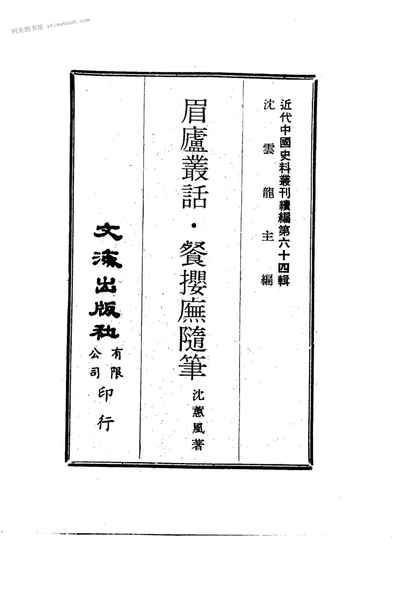 近代中國史料叢刊續編第六十四輯
沈雲龍主編
眉廬叢話·餐櫻廡隨筆
沈蕙風著
文海出版社
有限
公司
印行